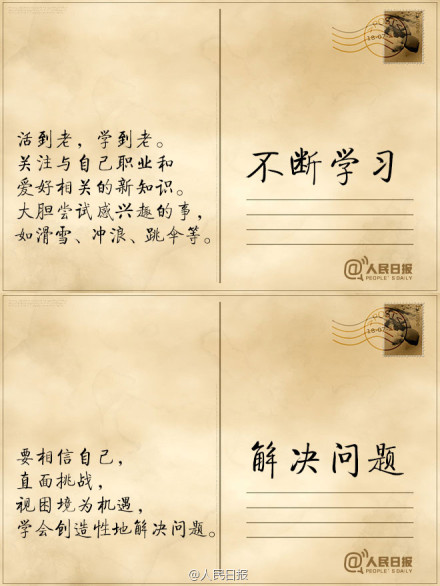 活到老，学到老。
关注与自己职业和
爱好相关的新知识。
大胆尝试感兴趣的事，
如滑雪、冲浪、跳伞等。
不断学习
@人民日报
PEOPLE'S DAILY
要相信自己，
直面挑战，
视困境为机遇，
学会创造性地解决问题。
解决问题
@人民日报
PEOPLE'S DAILY
@人民日报